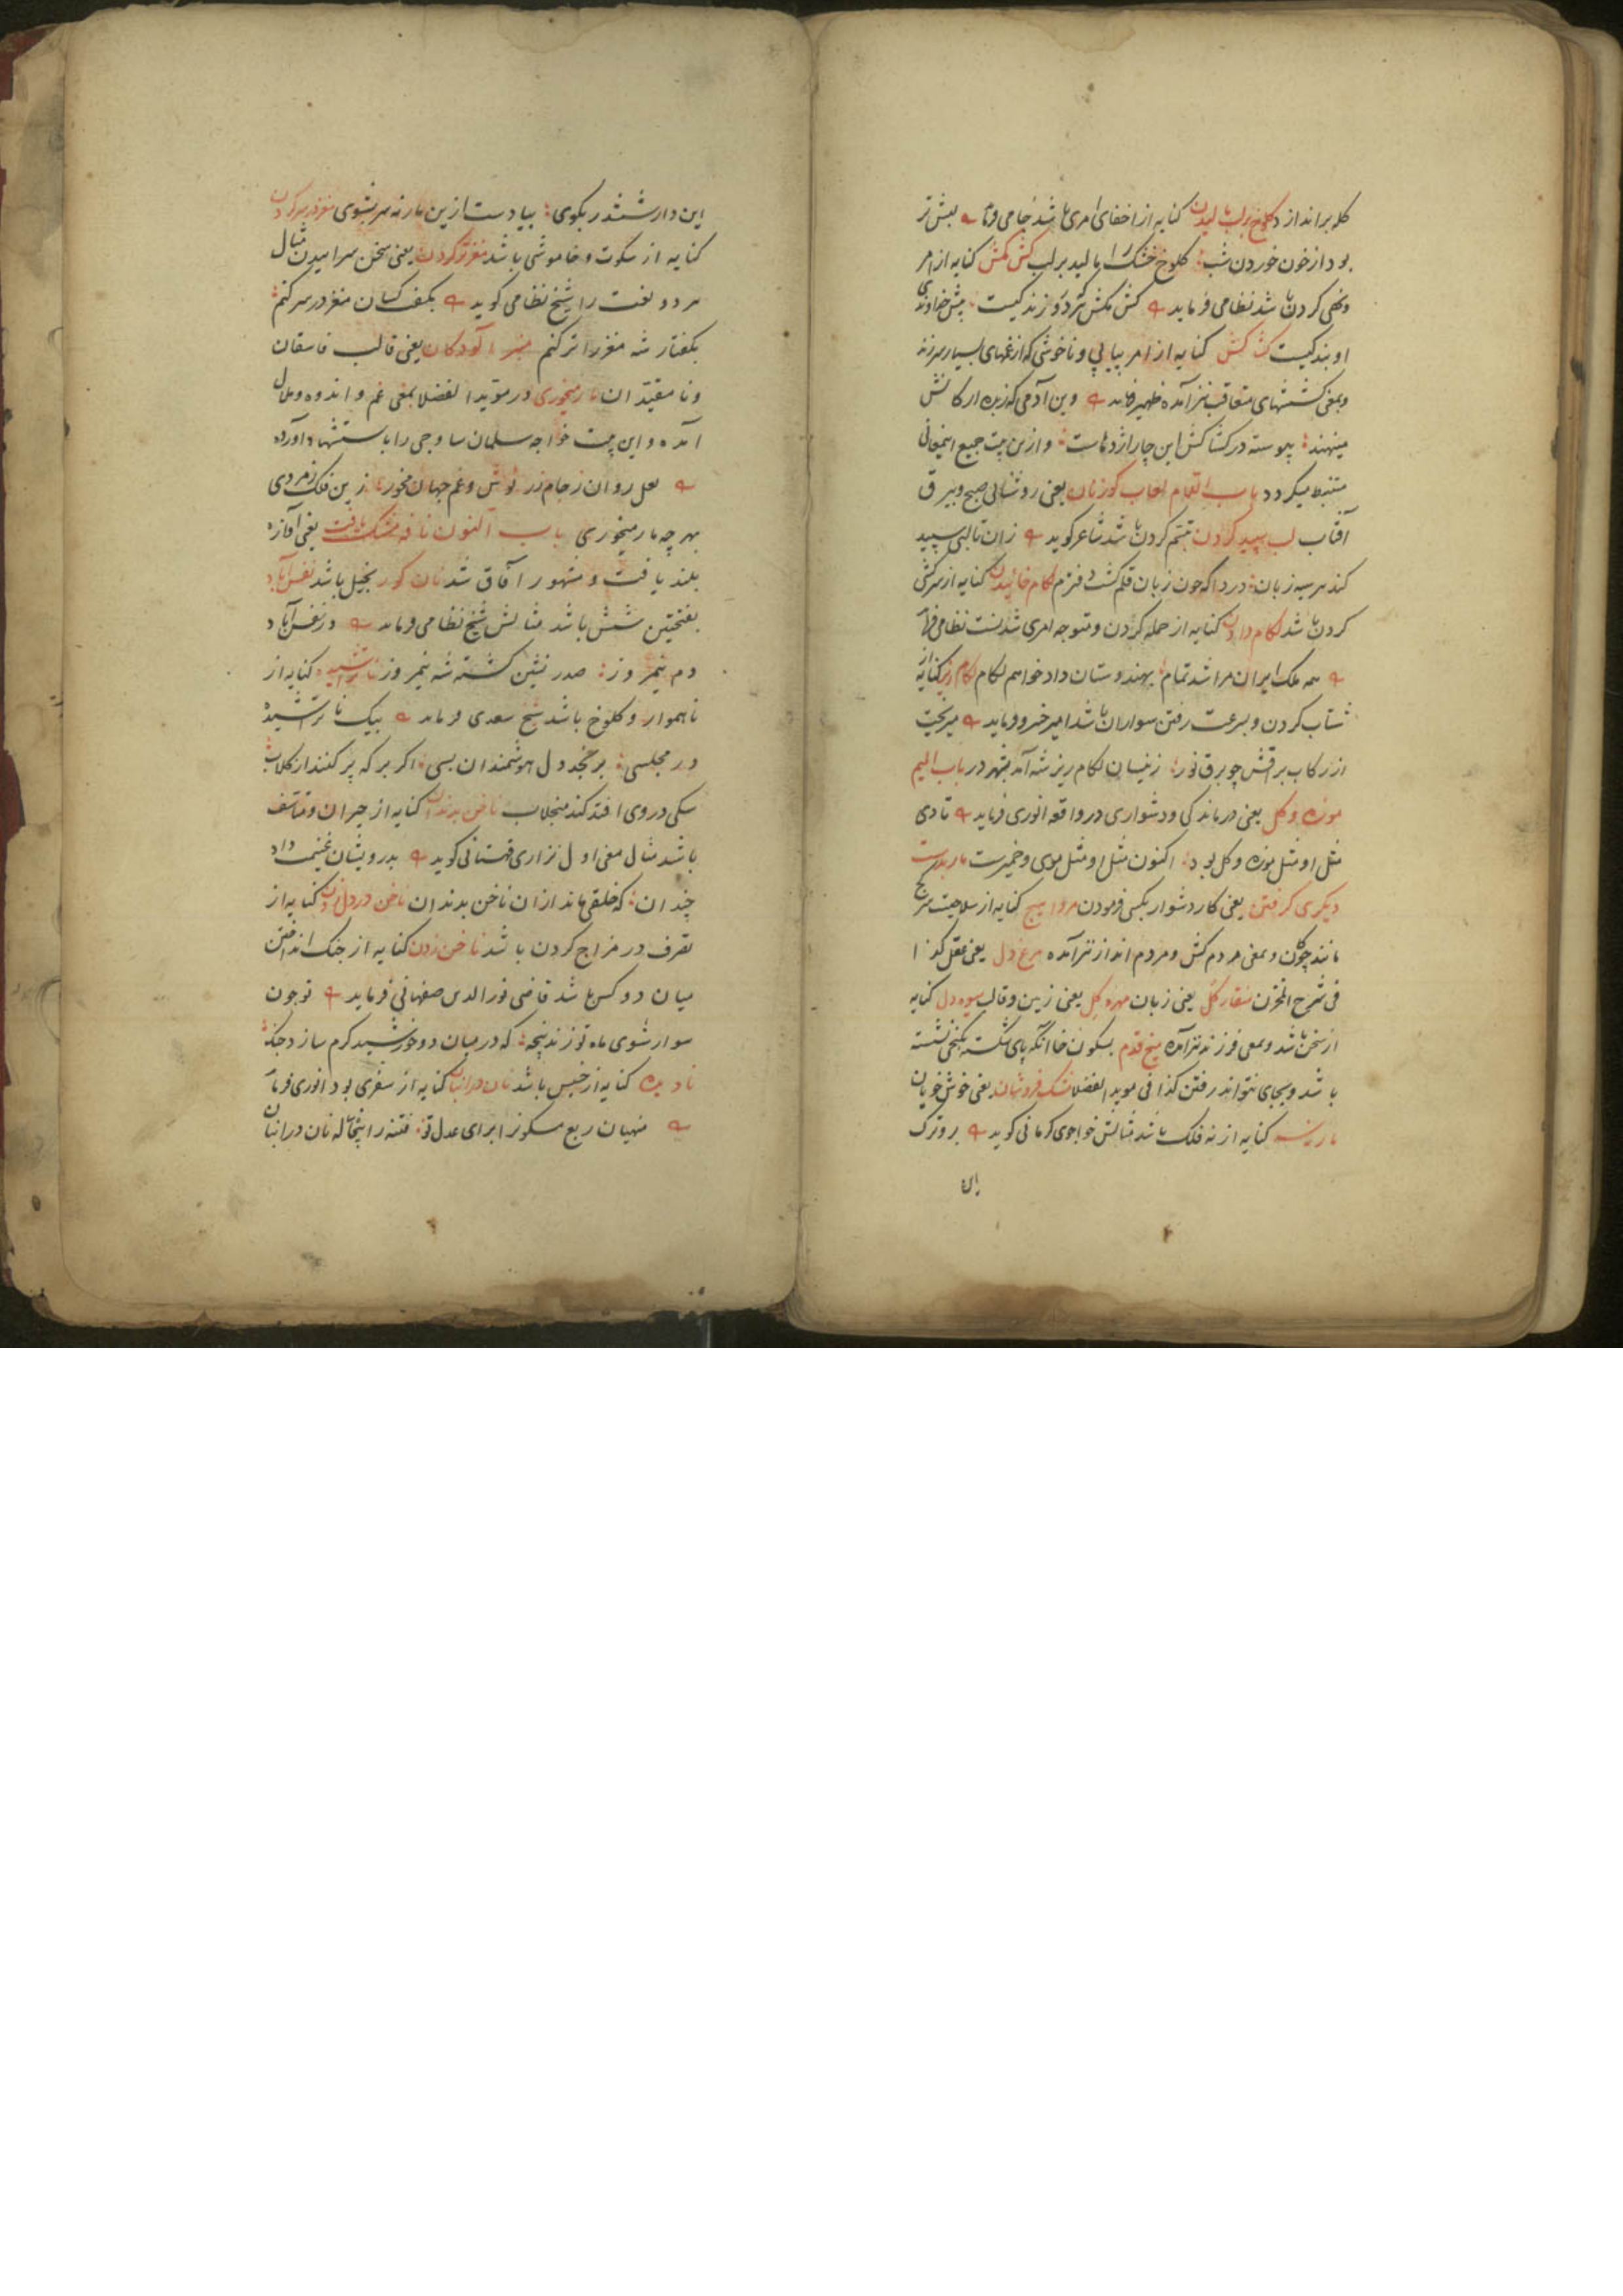 کله براندازد کلوخ بر لب مالیدن کنایه از اخفای امری باشد جامی فرماید بیش تر
بود از خون خوردن شب کلوخ خشک را مالید بر لب کش مکش کنایه از امر
و نهی کردن باشد نظامی فرماید کش مکش هر دو زند کیست پیش خداوندی
او بند کیست کشاکش کنایه از امر پیاپی و ناخوشی که از غمهای بسیار سر زند
و بمعنی کششهای متعاقب نیز آمده ظهیر فرماید وین آدمی که زبده ارکانش
مینهند پیوسته در کشاکش این چار اژدهاست و ازین بیت جمیع اینمعانی
مستنبط میکردد باب اللام لعاب کوزنان یعنی روشنائی صبح و برق
آفتاب لب سپید کردن تبسم کردن باشد شاعر کوید زان تا لبی سپید
کند هر سیه زبان دردا که چون زبان قلم کشت دفترم لکام خائیدن کنایه از سرکشی
کردن باشد لکام دادن کنایه از حمله کردن و متوجه امری شدنست نظامی فرماید
همه ملک ایران مرا شد تمام بهندوستان داد خواهم لکام لکام ریز کنایه از
شتاب کردن و بسرعت رفتن سواران باشد امیر خسرو فرماید میریخت
از رکاب براقش چو برق نور زینسان لکام ریز شه آمد بشهر در باب المیم
موزه و کل یعنی درماندکی و دشواری در واقعه انوری فرماید تا دی
مثل او مثل موزه و کل بود اکنون مثل او مثل موی و خمیرست مار بدست
دیکری کرفتن یعنی کار دشوار بکسی فرمودن کنایه از سلاحیت سرکج
مانند چوکان و بمعنی مردم کش و مردم انداز نیز آمده مرغ دل یعنی عقل کذا
فی شرح المخزن منقار کل یعنی زبان مهره کل یعنی زمین و قالب میوه دل کنایه
از سخن باشد و بمعنی فرزند نیز آمده میخ قدم بسکون خا انکه پای شکسته بکنجی نشسته
باشد و بجای نتواند رفتن کذا فی موید الفضلا مشک فروشان یعنی خوش خویان
مار نه سر کنایه از نه فلک باشد مثالش خواجوی کرمانی کوید برو ترک
این
این دار ششدر بکوی بیا دست ازین مار نه سر بشوی مغز در سر کردن
کنایه از سکوت و خاموشی باشد مغز تر کردن یعنی سخن سراییدن مثال
هر دو لغت را شیخ نظامی کوید بکف کسان مغز در سر کنم
بکفتار شه مغز را تر کنم یعنی قالب فاسقان
و نا مقیدان مار میخوری در موید الفضلا بمعنی غم و اندوه و ملال
آمده و این بیت خواجه سلمان ساوجی را باستشهاد آورده
لعل روان ز جام زر نوش و غم جهان مخور زین فلک زمردی
بهر چه مار میخوری باب النون نافه مشک یافت یعنی آوازه
بلند یافت و مشهور آفاق شد نان کور بخیل باشد نفس آباد
بفتحتین شش باشد مثالش شیخ نظامی فرماید در نفس آباد
دم نیمروز صدر نشین کشته شه نیمروز ناتراشیده کنایه از
ناهموار و کلوخ باشد شیخ سعدی فرماید بیک ناتراشیده
در مجلسی برنجد دل هوشمندان بسی اکر برکه پر کنند از کلاب
سکی در وی افتد کند منجلاب ناخن بدندان کنایه از حیران و متاسف
باشد مثال معنی اول نزاری قهستانی کوید بدرویشان غنیمت داد
چندان که خلقی ماند ازان ناخن بدندان ناخن در دل زدن کنایه از
تصرف در مزاج کردن باشد ناخن زدن کنایه از جنک انداختن
میان دو کس باشد قاضی نور الدین صفهانی فرماید تو چون
سوار شوی ماه نو زند پنجه که در میان دو خورشید کرم سازد جنک
نادیده کنایه از خسیس باشد نان در انبان کنایه از سفری بود انوری فرماید
منهیان ربع مسکون از برای عدل تو فتنه را نان در انبان